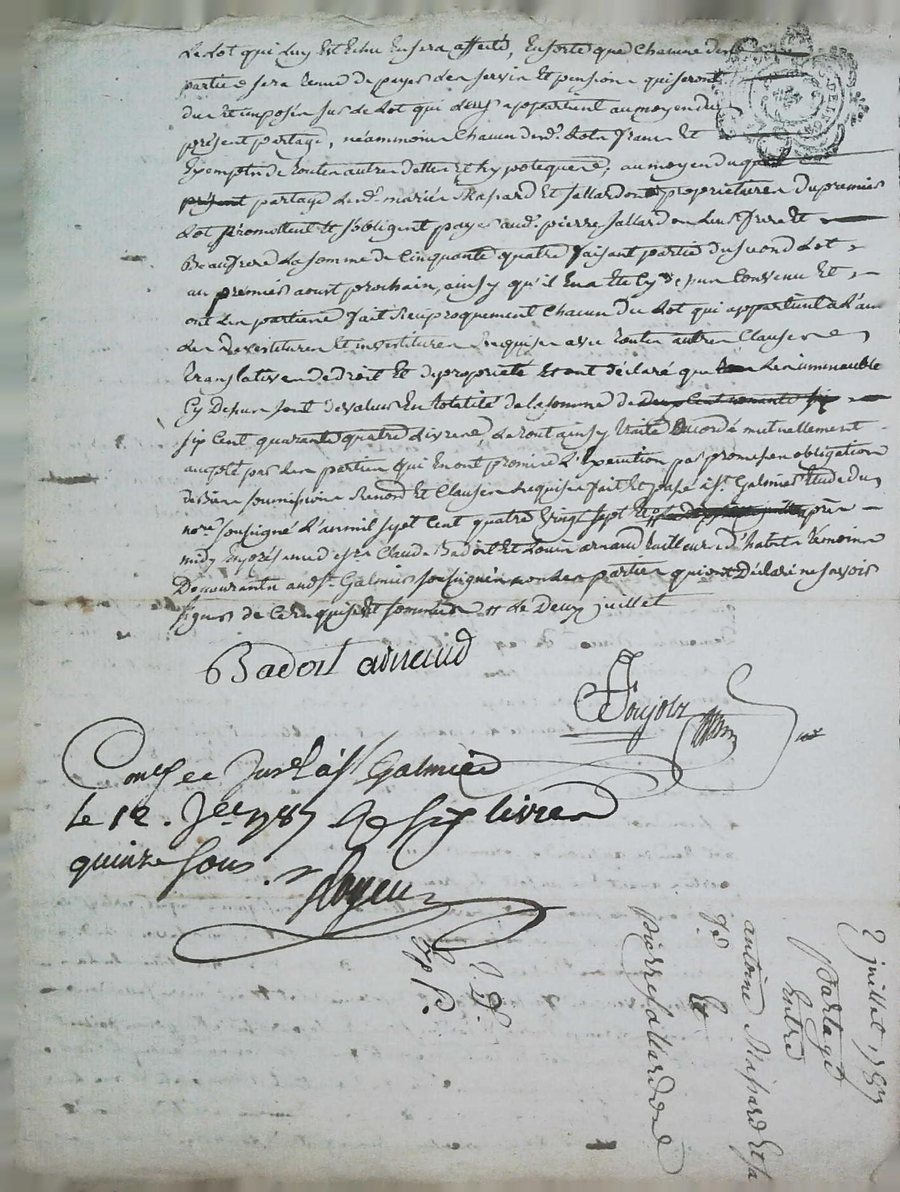 Le Lot qui luy Est Echu En sera affecté, En sorte que Chacune des
parties sera tenue de payer les servis Et pensions qui seront
dus Et imposés sur le Lot qui leurs appartient au moyen du
présent partage, néammoins Chacun desd. Lots franc Et
Exempts de toutes autres dettes Et hypoteques, au moyen duquel
partage lesd. mariés Massard Et Jallardon proprietaires du premier
Lot promettent Et s'obligent payer aud. pierre Jallardon leur frere Et
Beaufrere La somme de Cinquante quatre faisant partie du second Lot
au premier aoust prochain, ainsy qu'il En a Eté Cy dessus Convenu Et
ont les parties fait Reciproquement Chacun du Lot qui appartient à L'un
les devestitures Et investitures Requises avec toutes autres Clauses
translatives de droit Et de proprieté Et ont déclaré que les immeubles
Cy Dessus sont de valeur En totalité de la somme de
six Cent quarante quatre Livres, Le tout ainsy traité accordé mutuellement
accepté par les parties qui En ont promis L'Execution par promesse obligation
de biens soumissions Renond Et Clauses Requises fait Et passé à st. Galmier Etude du
nore. soussigné L'an mil sept Cent quatre vingt sept Et après
midy En présence de sr. Claude Badoit Et Louis arnaud tailleur d'habits temoins
Demeurants aud. st. Galmier soussignés non les parties qui ont Déclaré ne sçavoir
signer de Ce Enquises Et sommées Le Deux juillet
Badoit arnaud
Ponjols
à st Galmier
Le 12. Jet 1787 six livres
quinze sous.
2 juillet 1787
Partage
Entre
antoine Massard Et sa
Et
pierre Jallardon